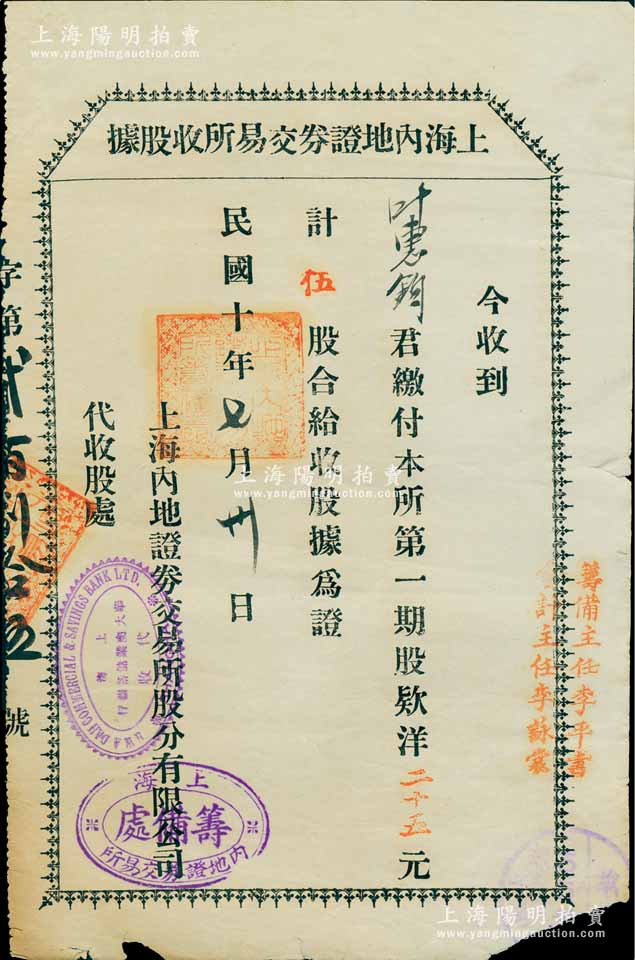 上海陽明拍賣
www.yangmingauction.com
上海內地證券交易所收股據
今收到
叶惠鈞君繳付本所第一期股款洋二十五元
計伍股合給收股據爲證
民國十年七月卅日
上海內地證券交易所股分有限公司
代收股處
字第貳百捌拾五號
籌備主任李平書
會計主任李詠裳
HWA DAH COMMERCIAL & SAVINGS BANK LTD.
代收
上海
華大商業儲蓄銀行
上海
籌備處
內地證券交易所
上海陽明拍賣
www.yangmingauction.com
上海陽明拍賣
www.yangmingauction.com